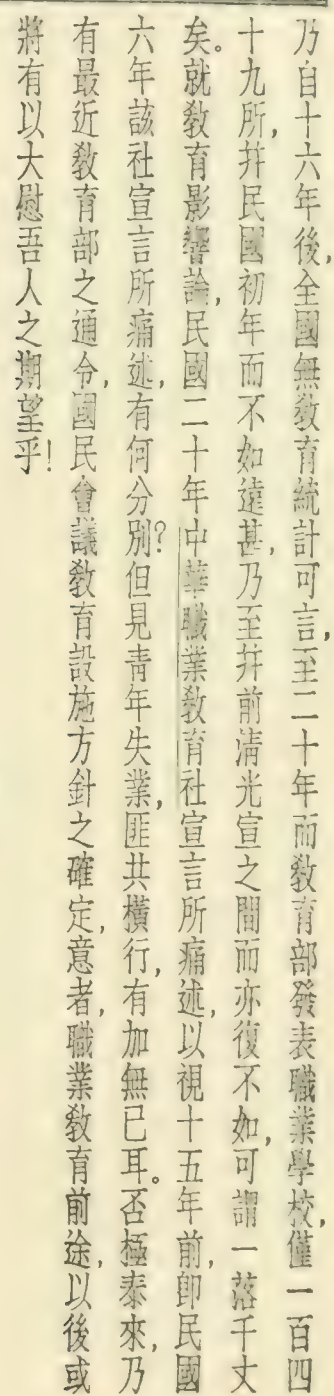 乃自十六年後，全國無敎育統計可言，至二十年而敎育部發表職業學校，僅一百四
十九所，幷民國初年而不如遠甚，乃至幷前淸光宣之間而亦復不如，可謂一落千丈
矣。就敎育影響論，民國二十年中華職業敎育社宣言所痛述，以視十五年前，卽民國
六年該社宣言所痛述，有何分別？但見靑年失業，匪共橫行，有加無已耳。否極泰來，乃
有最近敎育部之通令，國民會議敎育設施方針之確定，意者，職業敎育前途，以後或
將有以大慰吾人之期望乎！